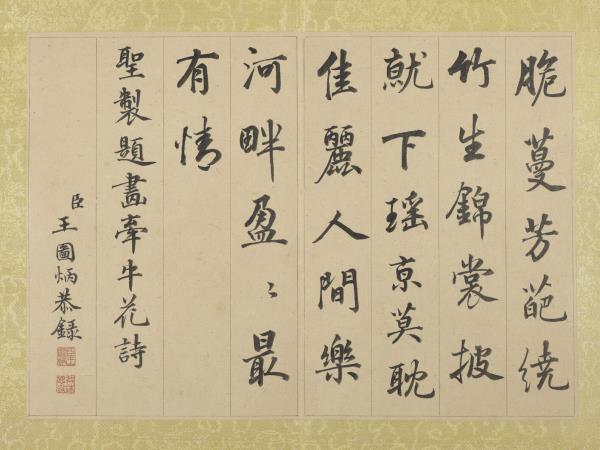 脆蔓芳葩繞
竹生錦裳披
就下瑤京莫耽
佳麗人間樂
河畔盈〻最
有情
聖製題畫牽牛花詩
臣王圖炳恭錄